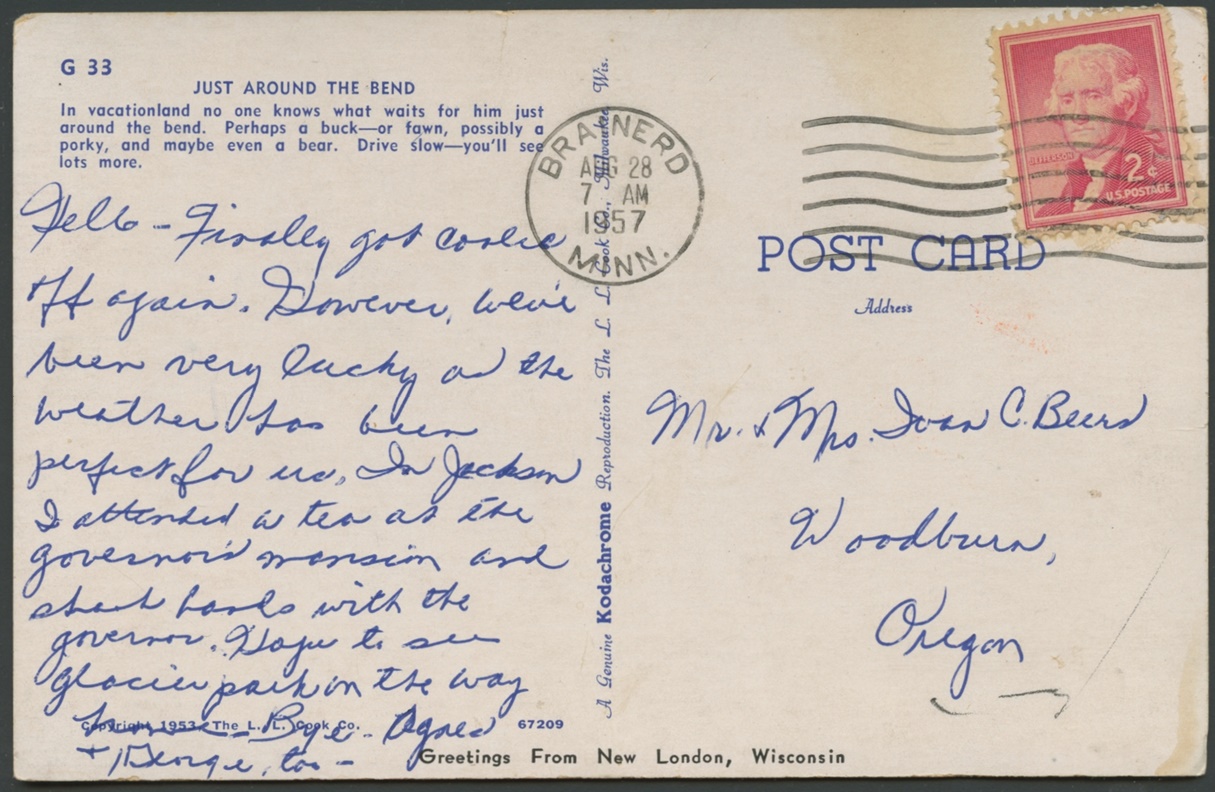 G 33
JUST AROUND THE BEND
In vacationland no one knows what waits for him just
around the bend. Perhaps a buck—or fawn, possibly a
porky, and maybe even a bear. Drive slow—you'll see
lots more.
Hello - Finally got cooled
off again. However, we've
been very lucky as the
weather has been
perfect for us. In Jackson
I attended a tea at the
governor's mansion and
shook hands with the
governor. Hope to see
Glacier park on the way
home - Bye - Agnes
+ George, too -
Copyright 1953 The L. L. Cook Co. 67209
Greetings From New London, Wisconsin
A Genuine Kodachrome Reproduction. The L. L. Cook Co., Milwaukee, Wis.
BRAINERD
AUG 28
7 AM
1957
MINN.
JEFFERSON
2¢
U.S. POSTAGE
POST CARD
Address
Mr. & Mrs. Ivan C. Beers
Woodburn,
Oregon